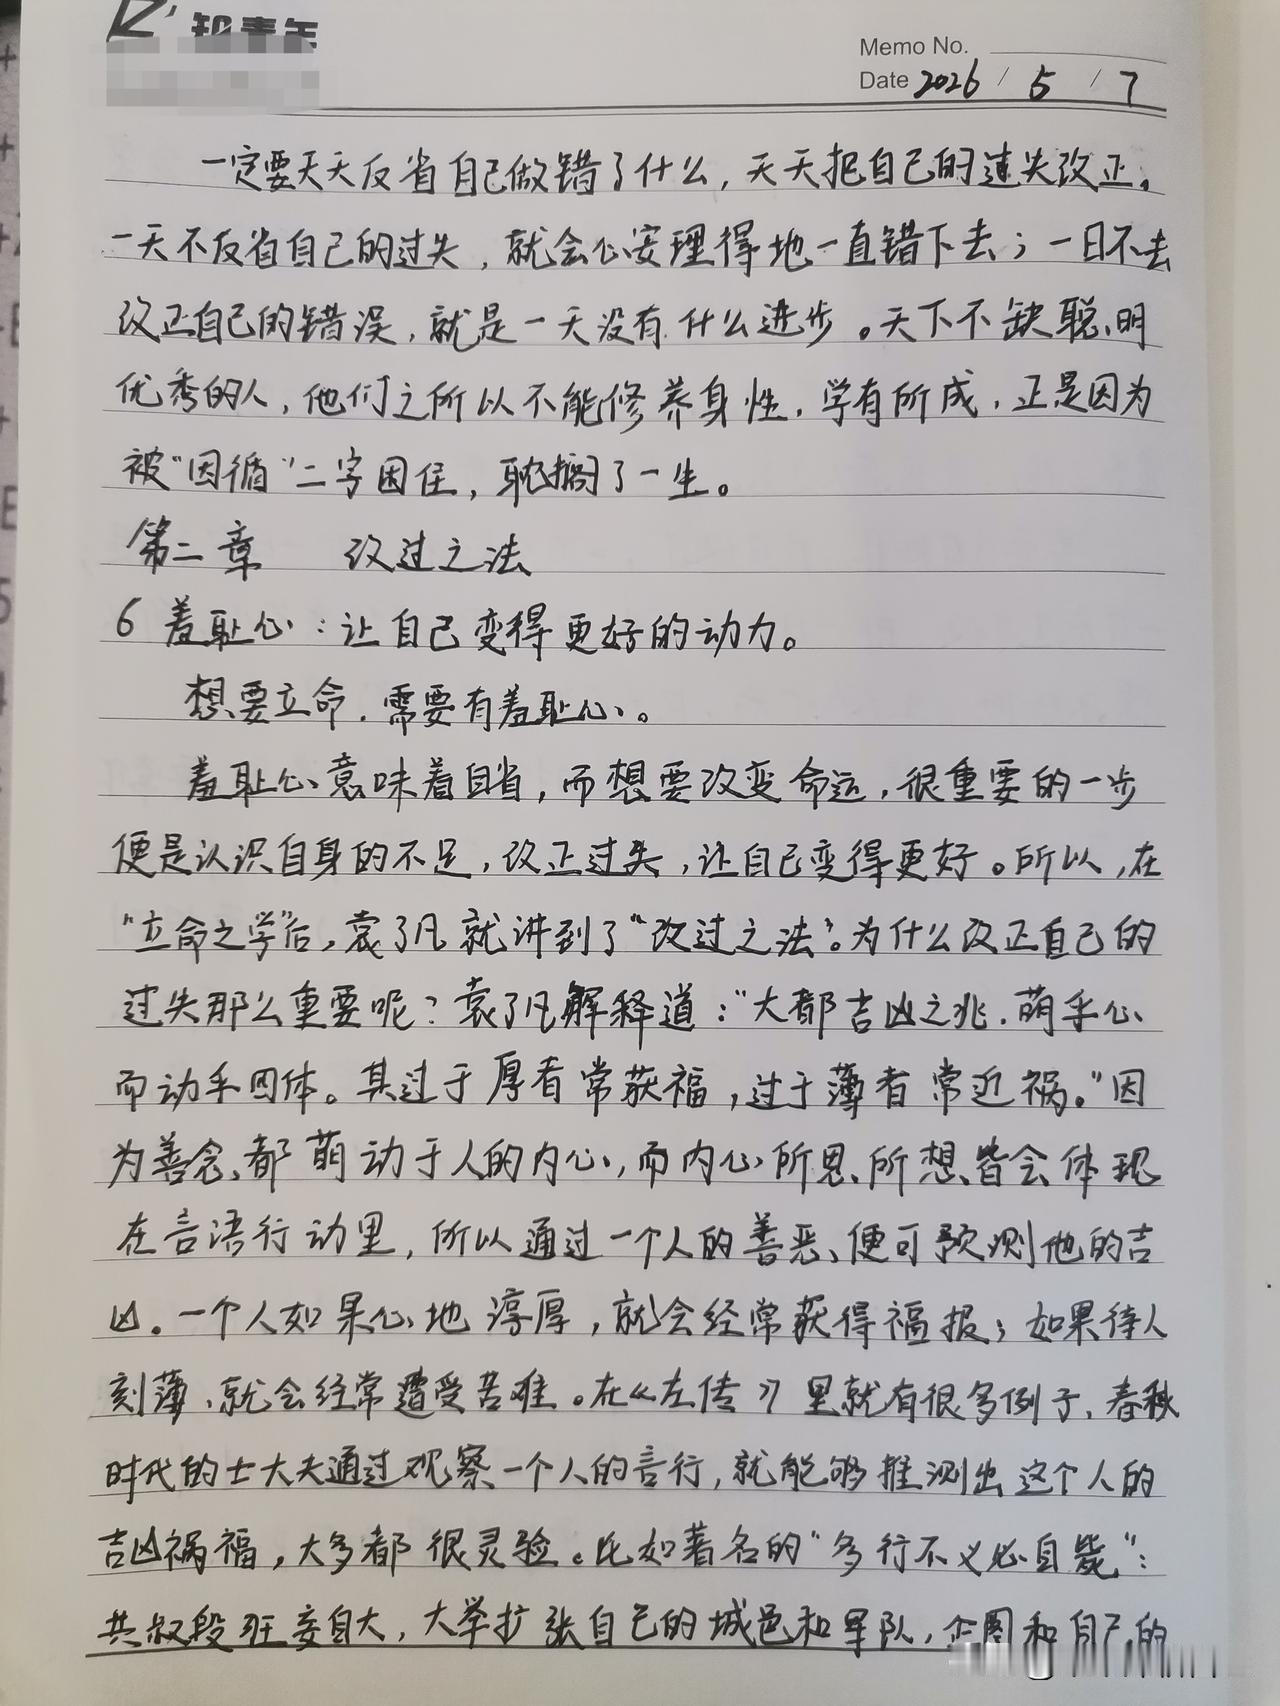 Memo No.
Date 2026 / 5 / 7
一定要天天反省自己做错了什么，天天把自己的过失改正。
一天不反省自己的过失，就会心安理得地一直错下去；一日不去
改正自己的错误，就是一天没有什么进步。天下不缺聪明
优秀的人，他们之所以不能修养身性，学有所成，正是因为
被“因循”二字困住，耽搁了一生。
第二章 改过之法
6 羞耻心：让自己变得更好的动力。
想要立命，需要有羞耻心。
羞耻心意味着自省，而想要改变命运，很重要的一步
便是认识自身的不足，改正过失，让自己变得更好。所以，在
“立命之学”后，袁了凡就讲到了“改过之法”。为什么改正自己的
过失那么重要呢？袁了凡解释道：“大都吉凶之兆，萌乎心
而动乎四体。其过于厚者常获福，过于薄者常近祸。”因
为善念、都萌动于人的内心，而内心所思所想皆会体现
在言语行动里，所以通过一个人的善恶、便可预测他的吉
凶。一个人如果心地淳厚，就会经常获得福报；如果待人
刻薄，就会经常遭受苦难。在《左传》里就有很多例子，春秋
时代的士大夫通过观察一个人的言行，就能够推测出这个人的
吉凶祸福，大多都很灵验。比如著名的“多行不义必自毙”：
共叔段狂妄自大，大举扩张自己的城邑和军队，企图和自己的